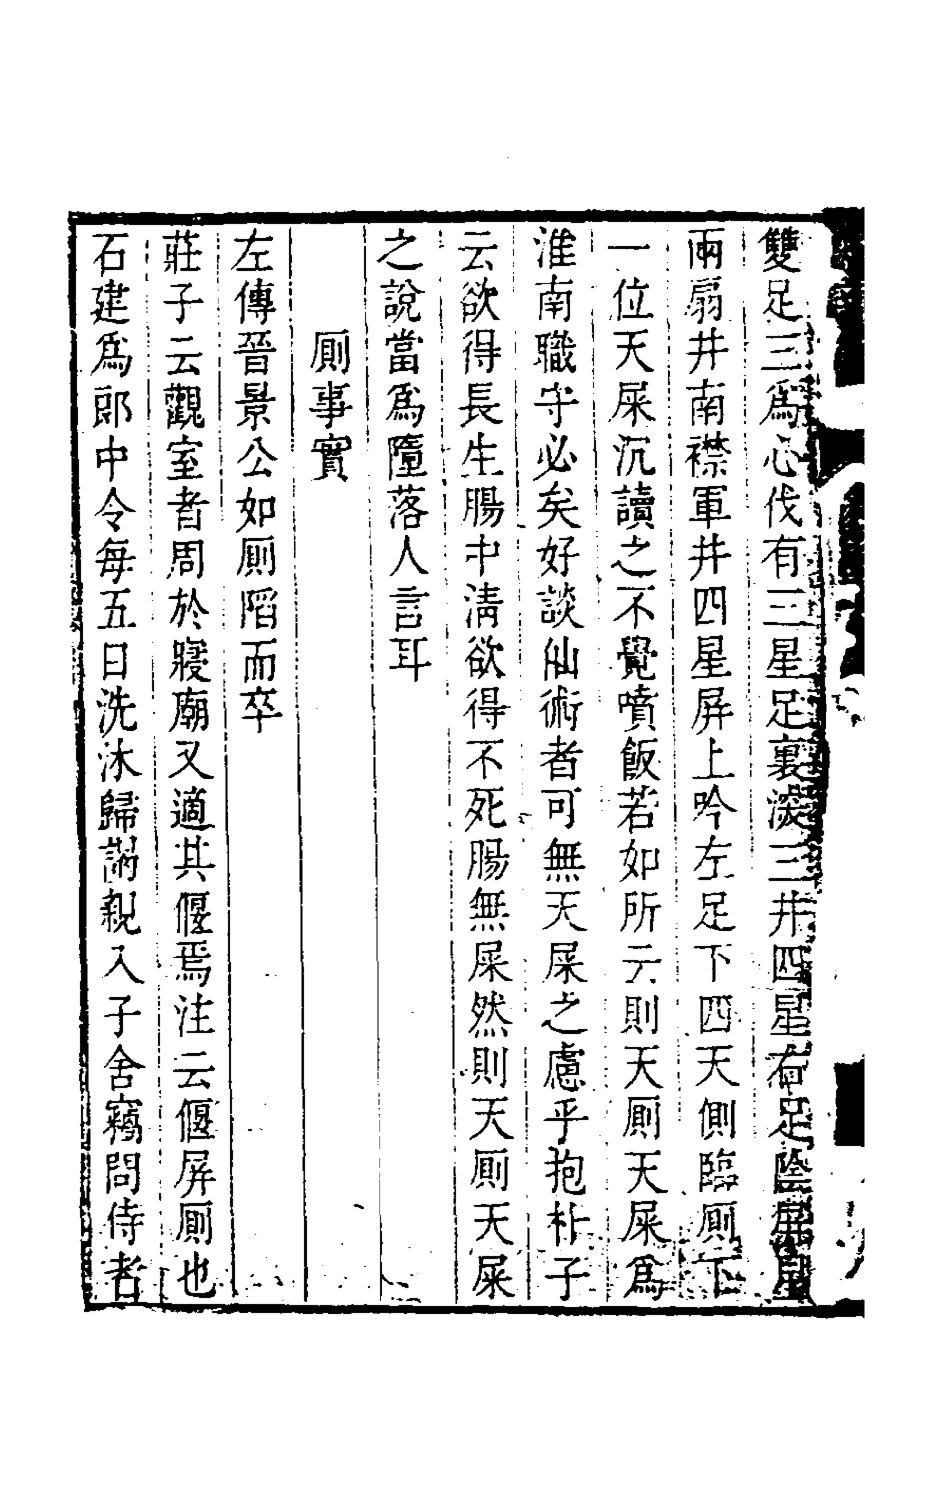 雙足三為心伐有三星足裏湥三井四星右足陰屏星
兩扇井南襟軍井四星屏上吟左足下四天側臨厠下
一位天屎沉讀之不覺噴飯若如所云則天厠天屎為
淮南職守必矣好談仙術者可無天屎之慮乎抱朴子
云欲得長生腸中清欲得不死腸無屎然則天厠天屎
之說當為墮落人言耳
厠事實
左傳晉景公如厠陷而卒
莊子云觀室者周於寢廟又適其偃焉注云偃屏厠也
石建為郎中令每五日洗沐歸謁親入子舍竊問侍者